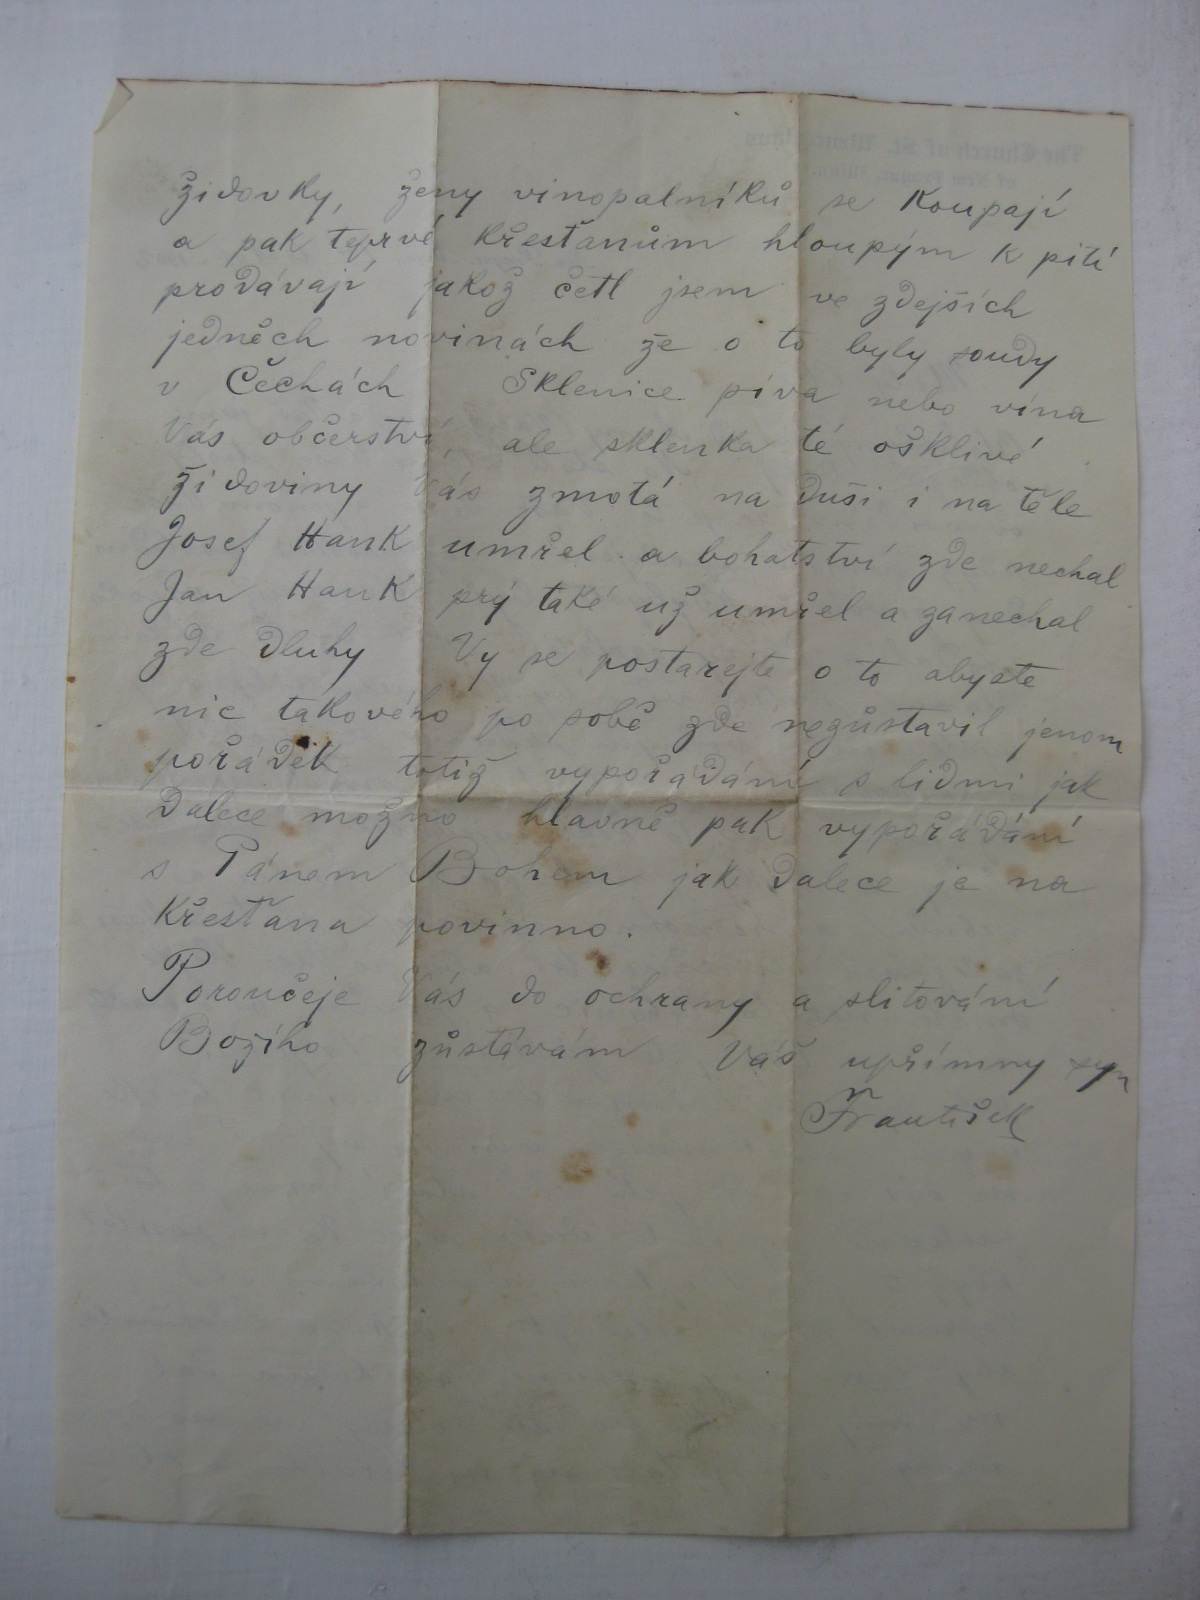 židovky, ženy vinopalníků se koupají
a pak teprvé křesťanům hloupým k pití
prodávají jakož četl jsem ve zdejších
jedněch novinách že o to byly soudy
v Čechách Sklenice píva nebo vína
Vás občerství, ale sklenka té ošklivé
židoviny Vás zmotá na duši i na těle
Josef Hank umřel a bohatství zde nechal
Jan Hank prý také už umřel a zanechal
zde dluhy Vy se postarejte o to abyste
nic takového po sobě zde nezůstavil jenom
pořádek totiž vypořádání s lidmi jak
dalece možno hlavně pak vypořádání
s Pánem Bohem jak dalece je na
křesťana povinno.
Poroučeje Vás do ochrany a slitování
Božího zůstávám Váš upřímny syn
František